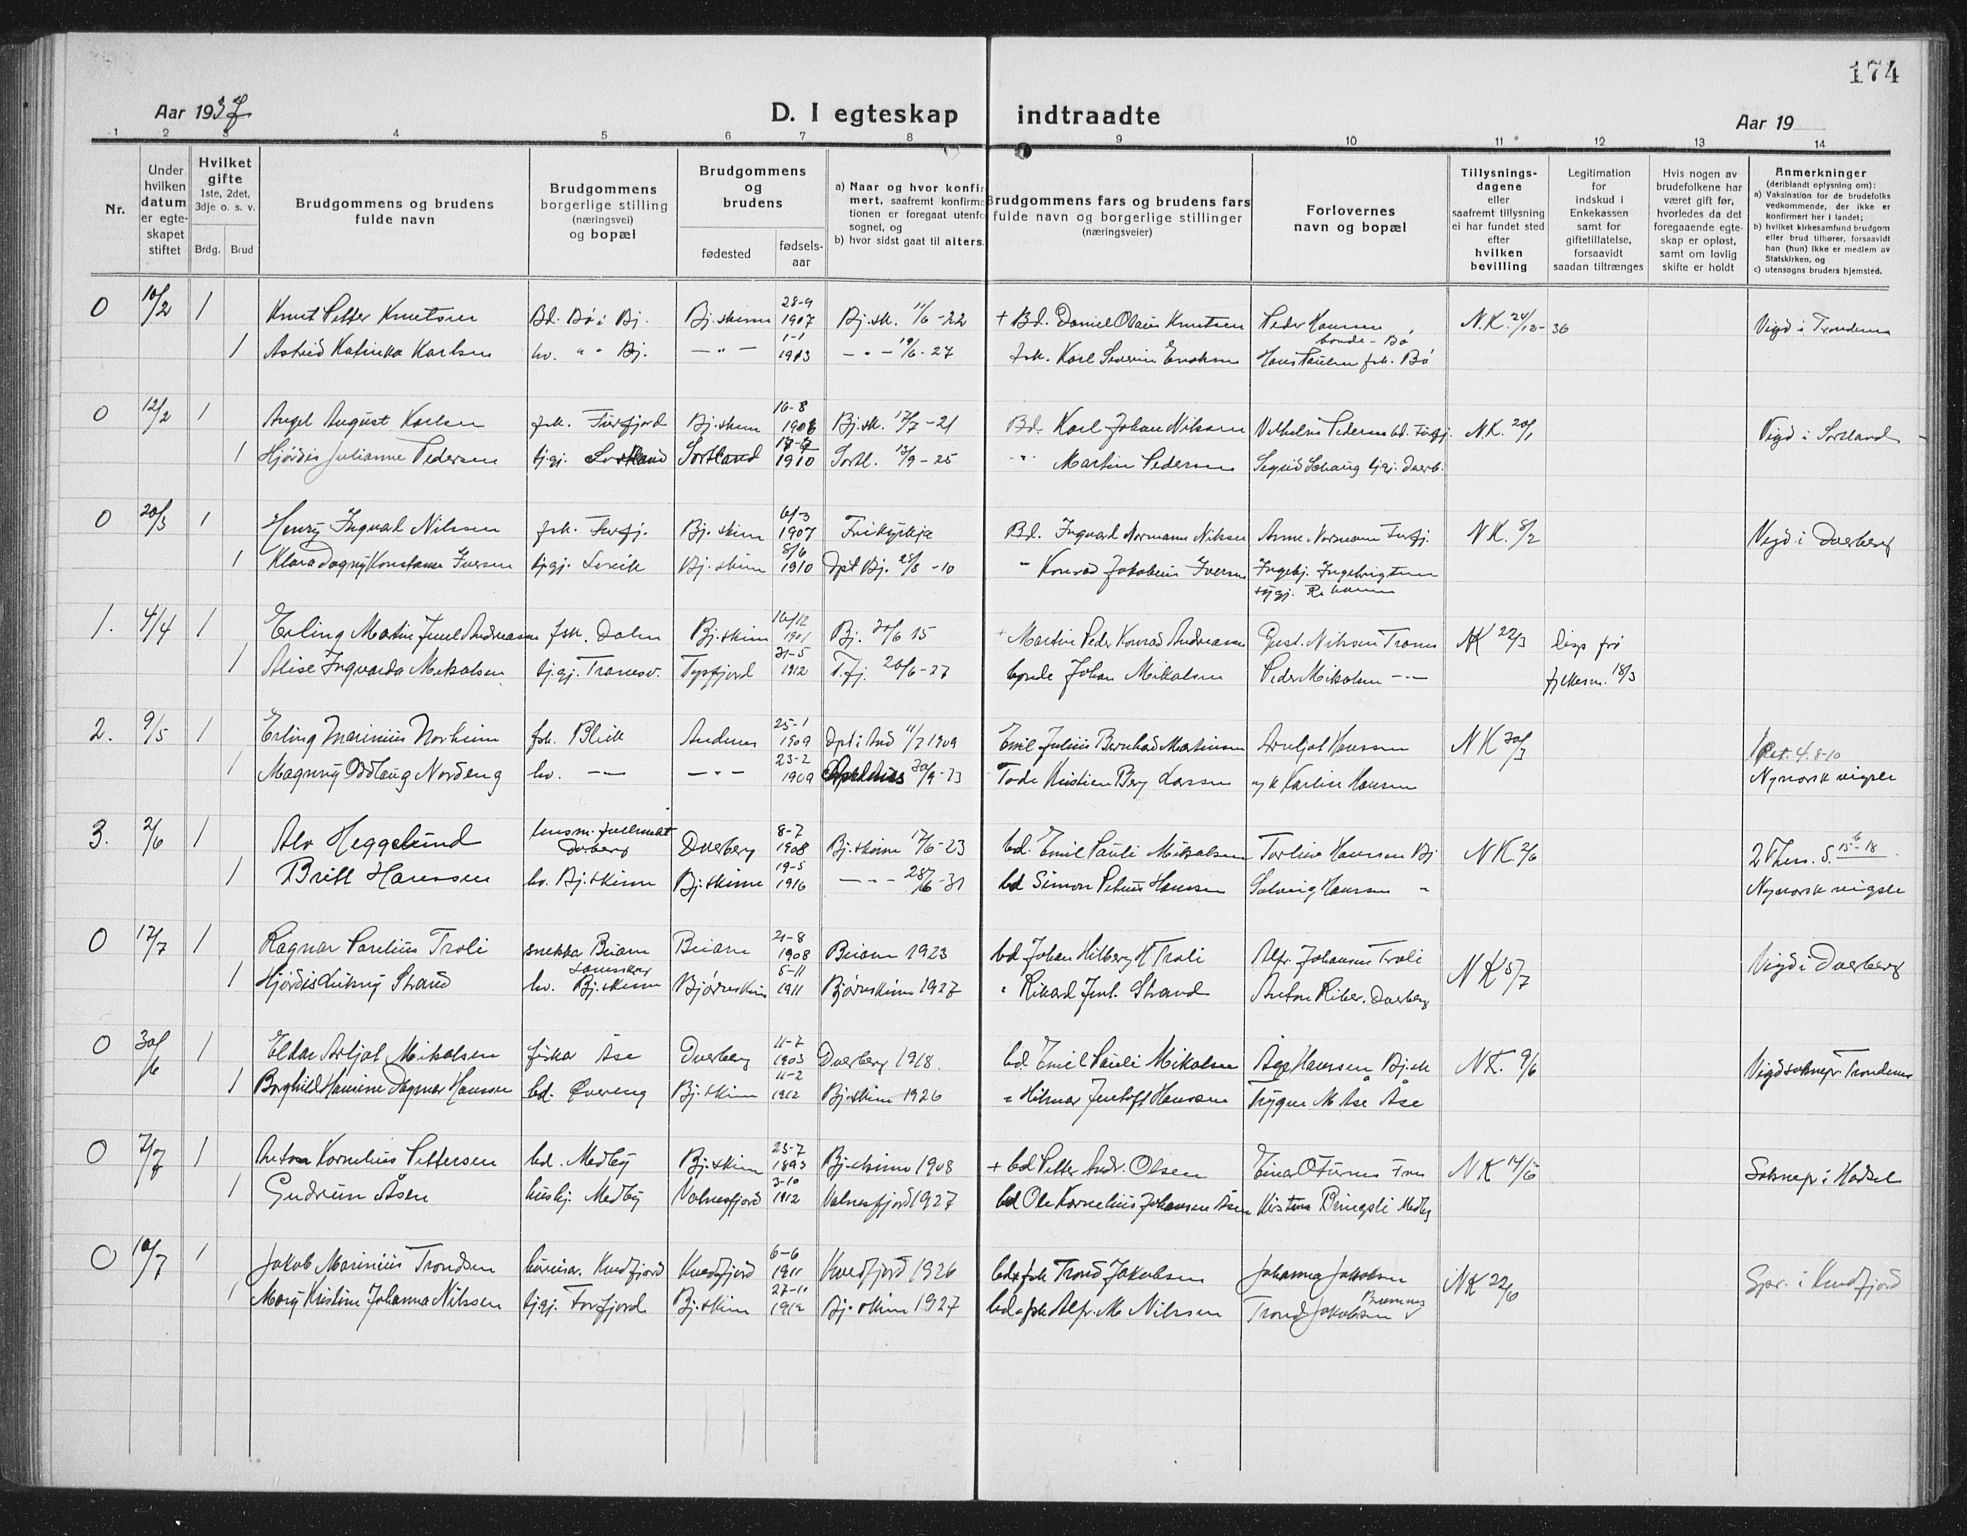 174
Aar 1937
D. I egteskap indtraadte
Aar 19
1 2 3 4 5 6 7 8 9 10 11 12 13 14
Nr.
Under hvilken datum er egteskapet stiftet
Hvilket gifte 1ste, 2det, 3dje o. s. v.
Brdg. Brud
Brudgommens og brudens fulde navn
Brudgommens borgerlige stilling (næringsvei) og bopæl
Brudgommens og brudens
fødested
fødselsaar
a) Naar og hvor konfirmert, saafremt konfirmationen er foregaat utenfor sognet, og
b) hvor sidst gaat til alters.
Brudgommens fars og brudens fars fulde navn og borgerlige stillinger (næringsveier)
Forlovernes navn og bopæl
Tillysningsdagene eller saafremt tillysning ei har fundet sted efter hvilken bevilling
Legitimation for indskud i Enkekassen samt for giftetillatelse, forsaavidt saadan tiltrænges
Hvis nogen av brudefolkene har været gift før, hvorledes da det foregaaende egteskap er opløst, samt om lovlig skifte er holdt
Anmerkninger (deriblandt oplysning om):
a) Vaksination for de brudefolks vedkommende, der ikke er konfirmert her i landet;
b) hvilket kirkesamfund brudgom eller brud tilhører, forsaavidt han (hun) ikke er medlem av Statskirken, og
c) utensogns bruders hjemsted.
0 10/2 1 Knut Petter Knutsen Bd. Bø i Bj. Bj.skinn 28-9 1907 Bj.sk. 11/6-22 + Bd. Daniel Olaus Knutsen Peder Hansen bonde - Bø N.K. 24/12-36 Vigd i Trondenes
1 Astrid Katinka Karlsen hv. " " Bj. -"- 1-1 1903 -"- 19/6-27 fsk. Karl Severin Enoksen Hans Paulsen fsk. Bø
0 12/2 1 Angel August Karlsen fsk. Forfjord Bj.skinn 16-8 1906 Bj.sk. 17/7-21 Bd. Karl Johan Nilssen Vilhelm Pedersen bd. Forfj. N.K. 20/1 Vigd i Sortland
1 Hjørdis Julianne Pedersen tj.gj. Sortland Sortland 1910 Sortl. 13/9-25 " Martin Pedersen Sigrid Schaug tjgj. Dverb.
0 20/3 1 Henry Ingvard Nilssen fsk. Forfj. Bj.skinn 6/3 1907 Frikyrkja Bd. Ingvard Normann Nilssen Anne Normann Forfj. N K. 8/2 Vigd i Dverberg
1 Klara Dagny Konstanse Iversen tj.gj. Bj.skinn 8/6 1910 Dpt Bj. 28/8-10 " Konrad Jakobeus Iversen Ingebj. Ingebrigtsen tjgj.
1. 4/4 1 Erling Martin Juul Andreassen fsk. Dalen Bj.skinn 16/12 1901 Bj. 20/6 15 + Martin Peder Konrad Andreassen Gust. Nilssen N K 22/3 Disp frå
1 Alise Ingvarda Mikalsen tj.gj. Tranesv. Tysfjord 31-5 1912 T.fj. 20/6-27 bonde Johan Mikalsen Peder Mikalsen -"- fylkesm. 18/3
2. 9/5 1 Erling Marinius Norheim fsk. Bleik Andenes 25-1 1909 Dpt i And 11/7 1909 Emil Julius Bernhard Martinsen Arnljot Hanssen N K 30/3 1 Pet. 4. 8-10
1 Magny Oddlaug Nordeng hv. -"- -"- 23-2 1909 30/9-23 Tode Kristian Berg Larssen Karlin Hansen Nynorsk vigsle
3. 2/6 1 Alv Heggelund Dverberg Dverberg 8-7 1908 Bj.skinn 17/6-23 bd. Emil Pauli Mikalsen Torline Hanssen Bj N K 2/6 2 Thess. 5. 15-18
1 Britt Hanssen hv. Bj.skinn Bj.skinn 19-5 1916 -"- 28/6-31 bd Simon Petrus Hanssen Solveig Hanssen " Nynorsk vigsle
0 17/7 1 Ragnar Parelius Troli snekkar Beiarn Beiarn 21-8 1908 Beiarn 1923 bd Johan Hilberg H Troli Alfr. Johansen Troli N K 5/7 Vigd i Dverberg
1 Hjørdis Strand hv. Bj.skinn Bjørnskinn 5-11 1911 Bjørnskinn 1927 " Rikard Jent. Strand Anton Riber. Dverberg
0 30/6 1 Eldar Arljot Mikalsen fiskar Åse Dverberg 11-7 1903 Dverberg 1918. bd Emil Pauli Mikalsen Åge Hanssen Bj.sk N K. 9/6 Vigd soknepr. Trondenes
1 Borghild Hansine Dagmar Hanssen bd. Øvereng Bj.skinn 11-2 1912 Bj.skinn 1926 " Hilmar Jentoft Hanssen Trygve M Åse Åse
0 1 Anton Kornelius Pettersen bd. Medby Bj.skinn 23-7 1893 Bj.skinn 1908 + bd Petter Andr. Olsen Einar O Furnes N K 14/6 Soknepr i Hadsel
1 Gudrun Åsen hushj. Medby Valnesfjord 3-10 1912 Valnesfjord 1927 bd Ole Kornelius Johansen Åsen Kirstine Bringsli Medby
0 10/7 1 Jakob Marinius Trondsen Kvedfjord Kvedfjord 6-6 1911 Kvedfjord 1926 bd & fsk Trond Jakobsen Johanna Jakobsen N K 22/6 Spr. i Kvedfjord
1 Mary Kristine Johanna Nilssen tj.gj. Forfjord Bj.skinn 27-10 1912 Bj.skinn 1927 bd & fsk Alfr. M Nilssen Trond Jakobsen Bremnes